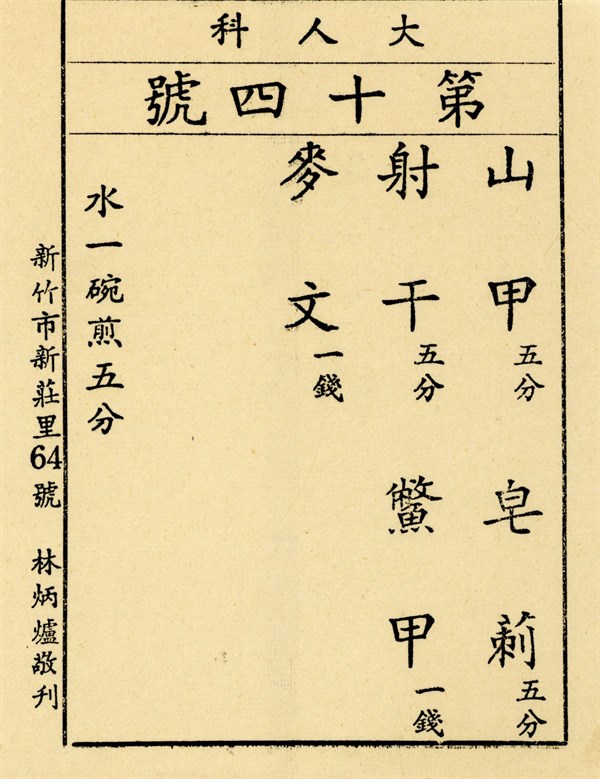 大人科
第十四號
山甲五分 皂莿五分
射干五分 鱉甲一錢
麥文一錢
水一碗煎五分
新竹市新莊里64號 林炳爐敬刋